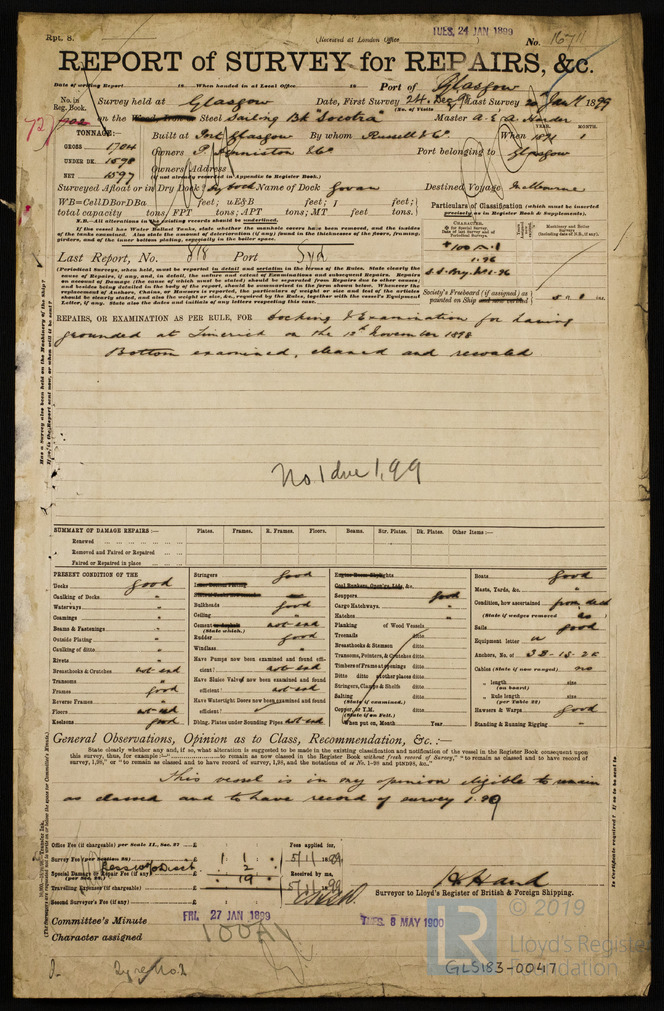 Rpt. 8.
(Received at London Office
TUES, 24 JAN 1899
No. 16711
REPORT of SURVEY for REPAIRS, &c.
Date of writing Report 18 When handed in at Local Office 18 Port of Glasgow
No. in Reg. Book. Survey held at Glasgow Date, First Survey 24 Dec 98 Last Survey 20th Jan 1899
(No. of Visits
72 on the Wood, Iron or Steel Sailing Bk "Socotra" Master A. E. A. Harder
TONNAGE:— Built at Port Glasgow By whom Russell & Co. When 1891 1
YEAR. MONTH.
GROSS 1704 Owners P. Denniston & Co Port belonging to Glasgow
UNDER DK. 1598 Owners' Address
NET 1597 (if not already recorded in Appendix to Register Book.)
Surveyed Afloat or in Dry Dock? Dry dock Name of Dock Govan Destined Voyage Melbourne
WB=CellDBorDBa feet; uE&B feet; f feet;
total capacity tons; FPT tons; APT tons; MT feet tons.
N.B.—All alterations in the existing records should be underlined.
If the vessel has Water Ballast Tanks, state whether the manhole covers have been removed, and the insides of the tanks examined. Also state the amount of deterioration (if any) found in the thicknesses of the floors, framing, girders, and of the inner bottom plating, especially in the boiler space.
Particulars of Classification (which must be inserted precisely as in Register Book & Supplements).
CHARACTER.
Machinery and Boiler Surveys (including date of N.B., if any).
1.96
Last Report, No. 818 Port Syd
(Periodical Surveys, when held, must be reported in detail and seriatim in the terms of the Rules. State clearly the cause of Repairs, if any, and, in detail, the nature and extent of Examinations and subsequent Repairs. Repairs on account of Damage (the cause of which must be stated) should be separated from Repairs due to other causes; and besides being detailed in the body of the report, should be summarised in the form shown below. Whenever the replacement of Anchors, Chains, or Hawsers is reported, the particulars of weight or size and test of the articles should be clearly stated, and also the weight or size, &c., required by the Rules, together with the vessel's Equipment Letter, if any. State also the dates and initials of any letters respecting this case.
Society's Freeboard (if assigned) as painted on Ship and now verified
REPAIRS, OR EXAMINATION AS PER RULE, FOR Docking & Examination for having
grounded at Limerick on the 12th November 1898
Bottom examined, cleaned and recoated
No 1 due 1,99
SUMMARY OF DAMAGE REPAIRS:— Plates. Frames. R. Frames. Floors. Beams. Str. Plates. Dk. Plates. Other Items:—
Renewed
Removed and Faired or Repaired
Faired or Repaired in place
PRESENT CONDITION OF THE
Decks good
Caulking of Decks "
Waterways "
Coamings "
Beams & Fastenings "
Outside Plating "
Caulking of ditto "
Rivets "
Breasthooks & Crutches not exd
Transoms "
Frames good
Reverse Frames "
Floors not exd
Keelsons good
Stringers good
Inner Bottom Plating
Bulkheads good
Ceiling "
Cement or Asphalt not exd
(State which.)
Rudder good
Windlass "
Have Pumps now been examined and found efficient? not exd
Have Sluice Valves now been examined and found efficient? not exd
Have Watertight Doors now been examined and found efficient?
Dblng. Plates under Sounding Pipes not exd
Engine Room Skylights
Coal Bunkers, Open'gs, Lids, &c.
Scuppers good
Cargo Hatchways "
Hatches "
Planking of Wood Vessels
Treenails ditto
Breasthooks & Stemson ditto
Transoms, Pointers, & Crutches ditto
Timbers of Frame at openings ditto
Ditto ditto at other places ditto
Stringers, Clamps & Shelfs ditto
Salting ditto
(State if examined.)
Copper, or Y.M. ditto
(State if on Felt.)
When put on, Month Year
Boats good
Masts, Yards, &c. "
Condition, how ascertained from deck
(State if wedges removed no
Sails good
Equipment letter
Anchors, No. of 3B-1S-2K
Cables (State if now ranged) no
" length size
(on board)
" Rule length size
(per Table 22)
Hawsers & Warps good
Standing & Running Rigging "
General Observations, Opinion as to Class, Recommendation, &c.:—
State clearly whether any and, if so, what alteration is suggested to be made in the existing classification and notification of the vessel in the Register Book consequent upon this survey, thus, for example:—" to remain as now classed in the Register Book without fresh record of Survey," "to remain as classed and to have record of survey, 1,98," or "to remain as classed and to have record of survey, 1,98, and the notations of ss No. 1-98 and ptND98, &c."
This vessel is in my opinion eligible to remain
as classed and to have record of survey 1.99
Office Fee (if chargeable) per Scale II., Sec. 27 £
Fees applied for,
Survey Fee (per Section 28) £ 1 1
Less 10% Disct 2
Special Damage or Repair Fee (if any) £ 19
(per Sec. 28.)
Received by me,
Travelling Expenses (if chargeable) £
Second Surveyor's Fee (if any) £
Surveyor to Lloyd's Register of British & Foreign Shipping.
Committee's Minute FRI. 27 JAN 1899 TUES. 8 MAY 1900
Character assigned 100A1
© 2019
LR
Lloyd's Register
Foundation
GLS183-0047